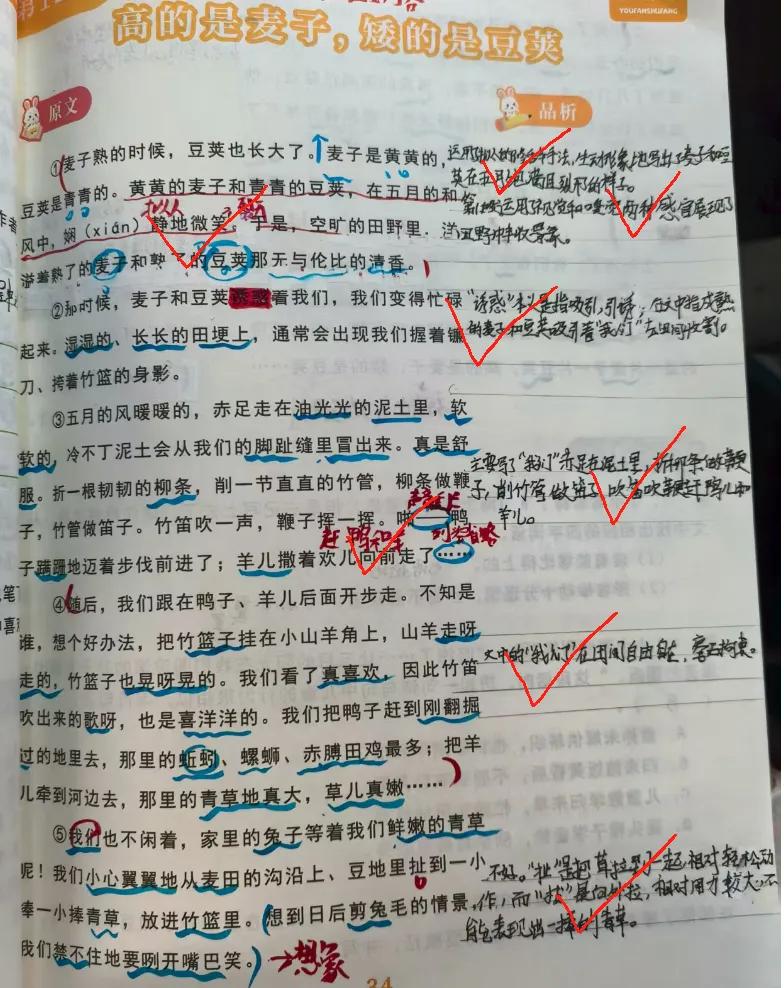 YOUFANSHUFANG
高的是麦子，矮的是豆荚
原文
品析
①麦子熟的时候，豆荚也长大了。麦子是黄黄的，
豆荚是青青的。黄黄的麦子和青青的豆荚，在五月的和
拟人
风中，娴（xián）静地微笑。于是，空旷的田野里，洋
溢着熟了的麦子和熟了的豆荚那无与伦比的清香。
②那时候，麦子和豆荚诱惑着我们，我们变得忙碌
起来。湿湿的、长长的田埂上，通常会出现我们握着镰
刀、挎着竹篮的身影。
③五月的风暖暖的，赤足走在油光光的泥土里，软
软的，冷不丁泥土会从我们的脚趾缝里冒出来。真是舒
服。折一根韧韧的柳条，削一节直直的竹管，柳条做鞭
子，竹管做笛子。竹笛吹一声，鞭子挥一挥。鸭
赶鸭和羊
列举省略
子蹒跚地迈着步伐前进了；羊儿撒着欢儿向前走了……
④随后，我们跟在鸭子、羊儿后面开步走。不知是
谁，想个好办法，把竹篮子挂在小山羊角上，山羊走呀
走的，竹篮子也晃呀晃的。我们看了真喜欢，因此竹笛
吹出来的歌呀，也是喜洋洋的。我们把鸭子赶到刚翻掘
过的地里去，那里的蚯蚓、螺蛳、赤膊田鸡最多；把羊
儿牵到河边去，那里的青草地真大，草儿真嫩……
⑤我们也不闲着，家里的兔子等着我们鲜嫩的青草
呢！我们小心翼翼地从麦田的沟沿上、豆地里扯到一小
捧一小捧青草，放进竹篮里。想到日后剪兔毛的情景，
我们禁不住地要咧开嘴巴笑。
→想象
运用拟人的修辞手法，生动形象地写出了麦子和豆
荚在五月里饱满且的样子。
运用了视觉和嗅觉两种感官展现了
田野丰收景象。
"诱惑"本义是指吸引，引诱；在文中指成熟
的麦子和豆荚吸引着"我们"在田间收割。
主要写了"我们"赤足走在泥土里，折柳条做鞭
子，削竹管做笛子，吹笛吹鞭赶鸭儿和
羊儿。
文中的"我们"在田间自由自在，无拘束。
不好。"扯"是把草拉到一起，相对轻松动
作，而"拔"是向外拉，相对用力较大，不
能表现出一捧的青草。
34